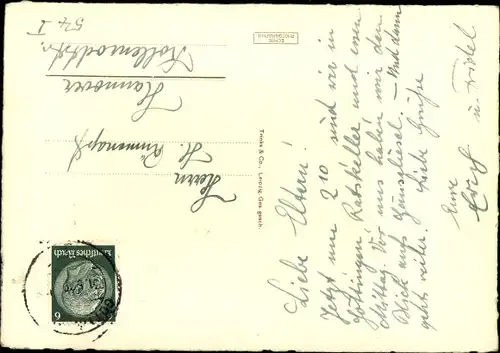 Liebe Eltern!
Jetzt um 2 10 sind wir in
Göttingen Ratskeller und essen
Mittag. Vor uns haben wir den
Blick aufs Gänseliesel. – Und dann
geht weiter. Liebe Grüße
Eure
Erich u. Friedel
ECHTE
PHOTOGRAPHIE
Trinks & Co., Leipzig. Ges. gesch.
Herrn
H.
Hannover
54 I
Deutsches Reich
6